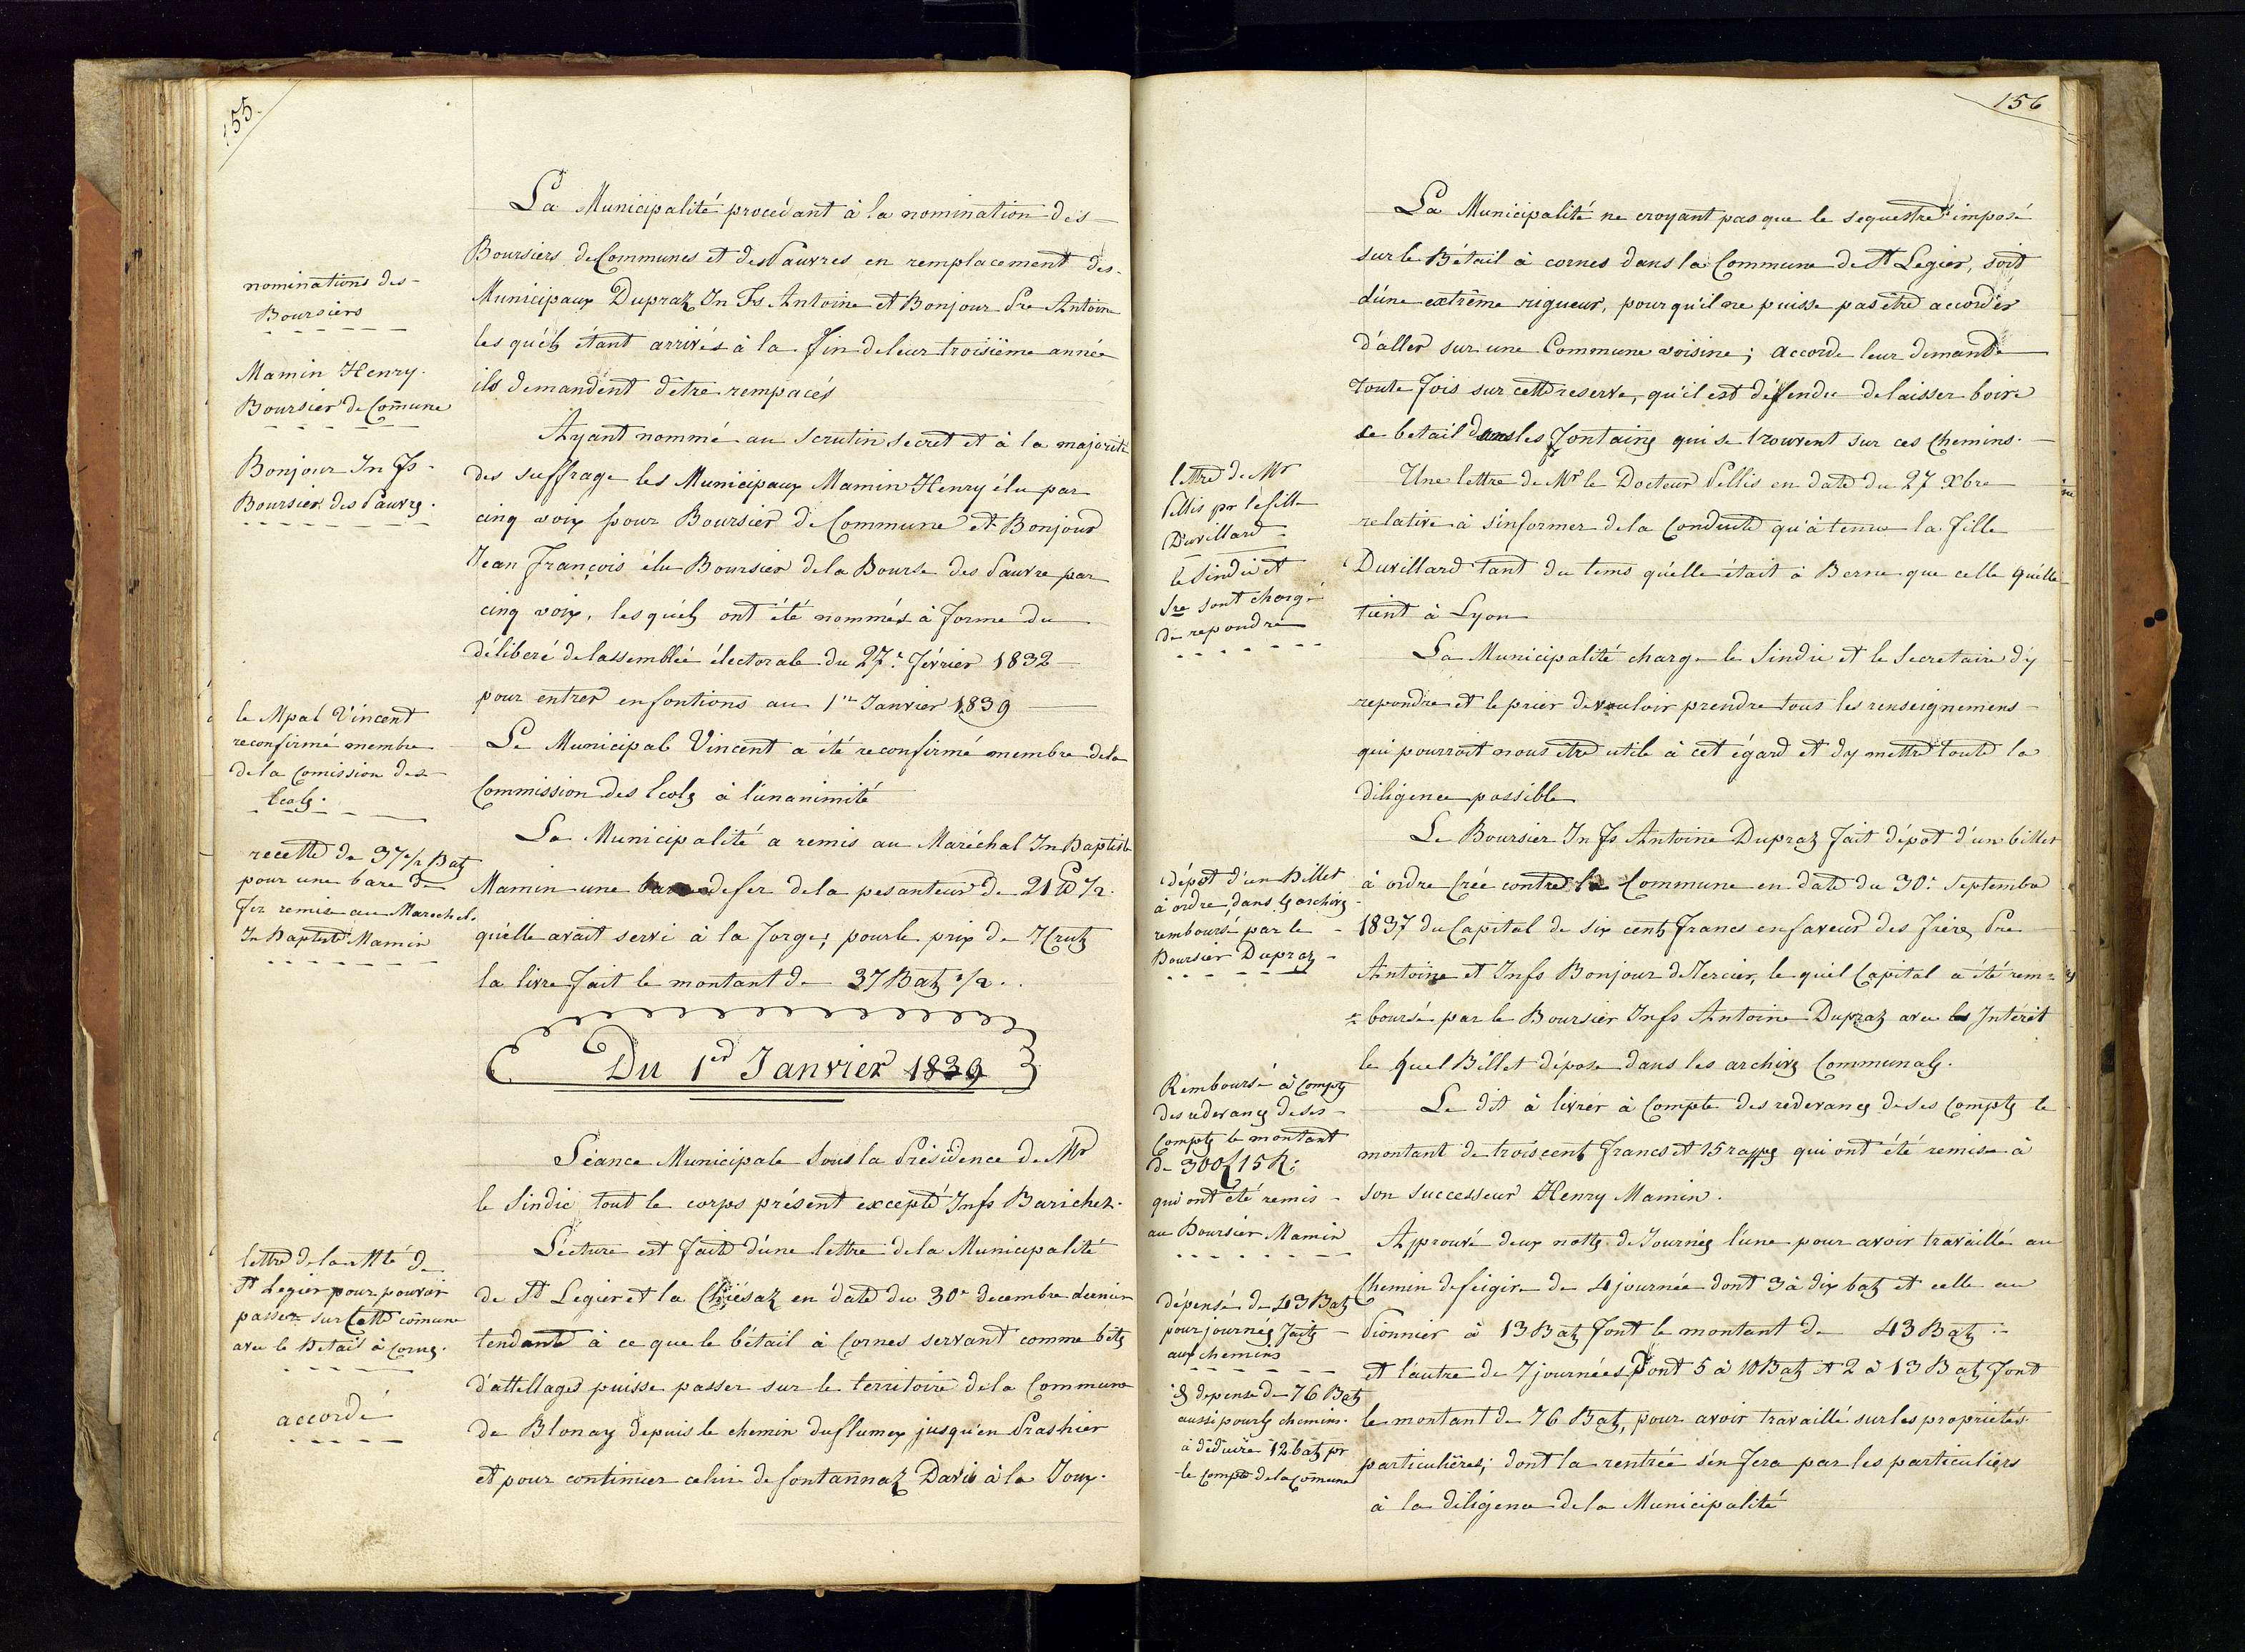 155.
nominations des
Boursiers
Mamin Henry.
Boursier de Comune
Bonjour Jn Fs
Boursier des Pauvres.
le Mpal Vincent
reconfirmé membre
de la Comission des
Ecoles.
recette de 37 1/2 Batz
pour une bare de
fer remise au Marechel
Jn Baptiste Mamin
lettre de la Mté de
St Legier pour pouvoir
passer sur Cette comune
avec le Betail à Cornes.
accordé
La Municipalité procédant à la nomination des
Boursiers de Communes et des Pauvres en remplacement des
Municipaux Dupraz Jn Fs Antoine et Bonjour Pre Antoine
les quéls étant arrivés à la Fin de leur troisième année
ils demandent d'être rempacés
Ayant nommé au Scrutin secret et à la majorité
des suffrage les Municipaux Mamin Henry élu par
cinq voix pour Boursier de Commune et Bonjour
Jean François élu Boursier de la Bourse des Pauvre par
cinq voix, les quéls ont été nommés à Forme du
déliberé de lassemblée électorale du 27e Février 1832
pour entrer en fontions au 1er Janvier 1839
Le Municipal Vincent a été reconfirmé membre dela
Commission des Ecoles à l'unanimité
La Municipalité a remis au Maréchal Jn Baptiste
Mamin une de fer de la pesanteur de 21 lb 1/2.
qu'elle avait servi à la Forge; pour le prix de 7 Crutz
la livre Fait le montant de 37 Batz 1/2.
Du 1er Janvier 1839
Séance Municipale Sous la Présidence de Mr
le Sindic tout le corps présent excepté Jnfs Barichet.
Lecture est Faite d'une lettre de la Municipalité
de St Legier et la Chiésaz en date du 30e decembre dernier
tendante à ce que le bétail à Cornes servant comme bêtes
d'attellages puisse passer sur le territoire de la Commune
de Blonay depuis le chemin du flumex jusqu'en Prashier
et pour continuer celui de fontannaz David à la Joux.
156
lettre de Mr
Pellis pr le fille
Duvillard
le Sindic et
Sre sont chargé
de repondre
dépôt d'un Billet
à ordre, dans les archives
remboursé par le
Boursier Dupraz
Remboursé à Comptes
des redevances de ses
Comptes le montant
de 300 f 15 R:
qui ont été remis
au Boursier Mamin
dépensé de 43 Batz
pour journées Faites
aux chemins
& depense de 76 Batz
aussi pour les chemins.
à déduire 12 batz pr
le compte de la Comune
La Municipalité ne croyant pas que le sequestre imposé
sur le Bétail à cornes dans la Commune de St Legier, soit
d'une extrême rigueur, pour qu'il ne puisse pas être accorder
d'aller sur une Commune voisine; accorde leur demande
toute Fois sur cette reserve, qu'il est défendu de laisser boire
le betail dans les Fontaines qui se trouvent sur ces Chemins.
Une lettre de Mr le Docteur Pellis en date du 27 Xbre
relative à s'informer de la Conduite qu'à tenue la Fille
Duvillard tant du tems qu'elle était à Berne que celle qu'elle
tient à Lyon
La Municipalité charge le Sindic et le Secretaire d'y
repondre et le prier de vouloir prendre tous les renseignemens
qui pourroit nous être utile à cet égard et d'y mettre toute la
diligence possible
Le Boursier Jn Fs Antoine Dupraz Fait dépot d'un billet
à ordre Crée contre la Commune en date du 30e Septembre
1837 du Capital de six cents Francs en faveur des Frères Pre
Antoine et Jnfs Bonjour de Tercier, le quel Capital a été rem=
=boursé par le Boursier Jnfs Antoine Dupraz avec les Intérêt
le quel Billet dépose dans les archives Communales.
Le dit à livrér à Compte des redevances de ses Comptes le
montant de trois cents Francs et 15 rappes qui ont été remise à
son successeur Henry Mamin.
Approuvé deux nottes de Journées l'une pour avoir travaillé au
Chemin de feigire de 4 journée dont 3 à dix batz et celle au
Pionnier à 13 Batz Font le montant de 43 Batz
et l'autre de 7 journées Dont 5 à 10 Batz et 2 à 13 Batz Font
le montant de 76 Batz, pour avoir travaillé sur les propriétés
particulières; dont la rentrée s'en Fera par les particuliers
à la diligence de la Municipalité